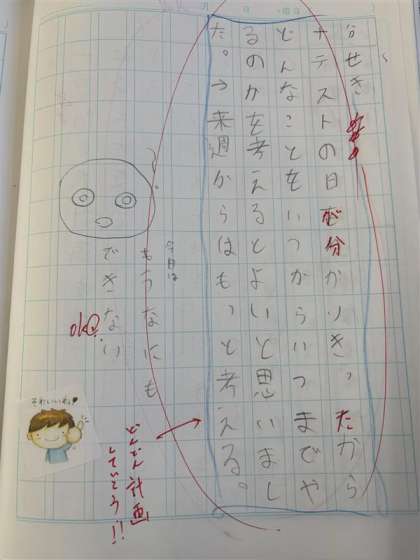 分せき
ナテストの日が分かりきったから
どんなことをいつからいつまでや
るのかを考えるとよいと思いまし
た。→来週からはもっと考える。
今月は
もうなにも
できない
どんどん計画
していこう!!
それいいね♥